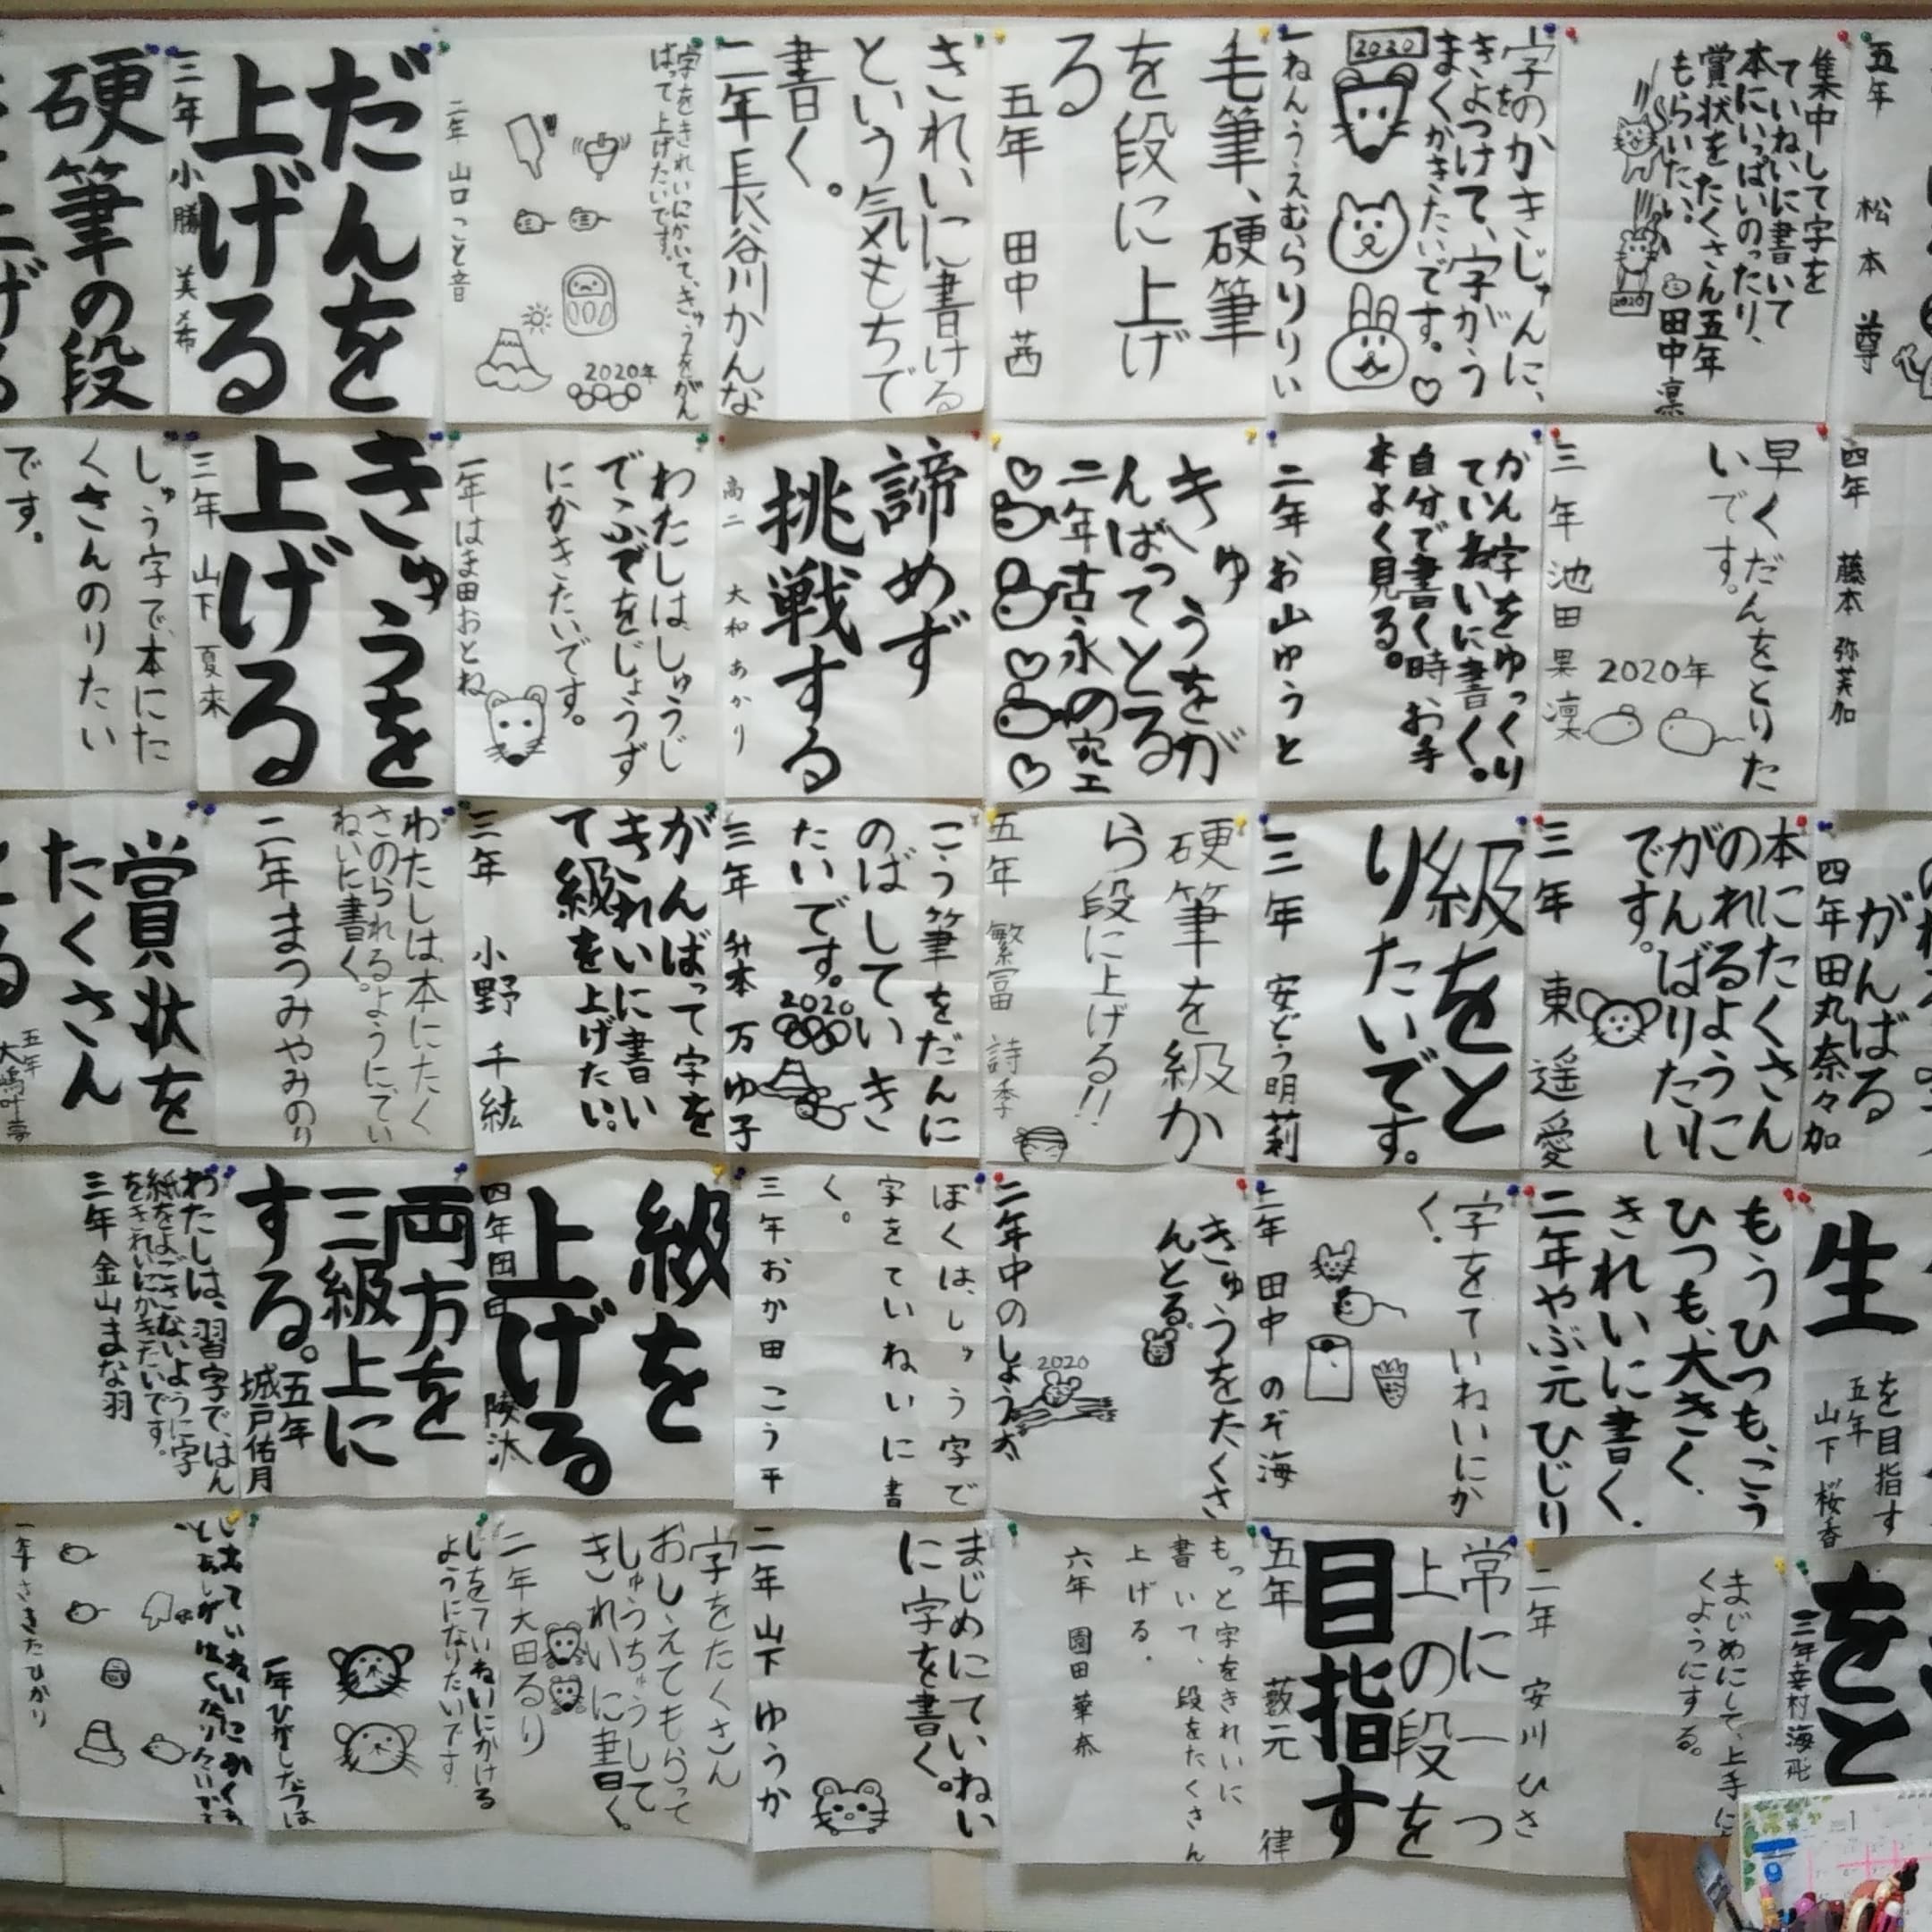 五年 松本 尊
集中して字を
ていねいに書いて
本にいっぱいのったり、
賞状をたくさん
もらいたい。
五年 田中凛
2020
字のかきじゅんに、
きをつけて、字がう
まくかきたいです。
2020
一ねん うえむらりりい
毛筆、硬筆
を段に上げ
る
五年 田中 茜
きれいに書ける
という気もちで
書く。
二年 長谷川かんな
字をきれいにかいて、きゅうをがん
ばって上げたいです。
2020年
二年 山口 こと音
だんを
上げる
三年 小勝 美希
硬筆の段
四年 藤本 弥芙加
早くだんをとりた
いです。
2020年
三年 池田果凛
かん字をゆっくり
ていねいに書く。
自分で書く時お手
本よく見る。
二年 お山ゆうと
きゅうをが
んばってとる
二年 古永の
諦めず
挑戦する
高二 大和あかり
わたしは、しゅうじ
でふでをじょうず
にかきたいです。
一年 はま田おとね
きゅうを
上げる
三年 山下 夏未
しゅう字で、本にた
くさんのりたい
です。
がんばる
四年 田丸奈々加
本にたくさん
のれるように
がんばりたい
です。
三年 東 遥愛
級をと
りたいです。
三年 安どう明莉
硬筆を級か
ら段に上げる!!
五年 繁冨 詩季
こう筆をだんに
のばしていき
たいです。
2020
三年 舛本 万ゆ子
がんばって字を
きれいに書い
て級を上げたい。
三年 小野 千紘
わたしは、本にたく
さのられるようにてい
ねいに書く。
二年 まつみやみのり
賞状を
たくさん
とる
五年 大嶋叶夢
生
を目指す
五年 山下 桜香
もうひつも、こう
ひつも、大きく、
きれいに書く。
二年 やぶ元ひじり
字をていねいにか
く。
二年 田中 のぞ海
きゅうをたくさ
んとる。
2020
二年 中のしょう太
ぼくは、しゅう字で
字をていねいに書
く。
三年 おか田こう平
級を
上げる
四年 岡田 陵汰
両方を
三級上に
する。
五年 城戸佑月
わたしは、習字で、はん
紙をよごさないように字
をきれいにかきたいです。
三年 金山まな羽
をと
三年 幸村海飛
まじめにして、上手に
くようにする。
二年 安川 ひさ
常に一つ
上の段を
目指す
五年 藪元 律
もっと字をきれいに
書いて、段をたくさん
上げる。
六年 園田華奈
まじめにていねい
に字を書く。
二年 山下 ゆうか
字をたくさん
おしえてもらって
しゅうちゅうして
きれいに書く。
二年 大田るり
じをていねいにかける
ようになりたいです。
一年 ささきたひかり